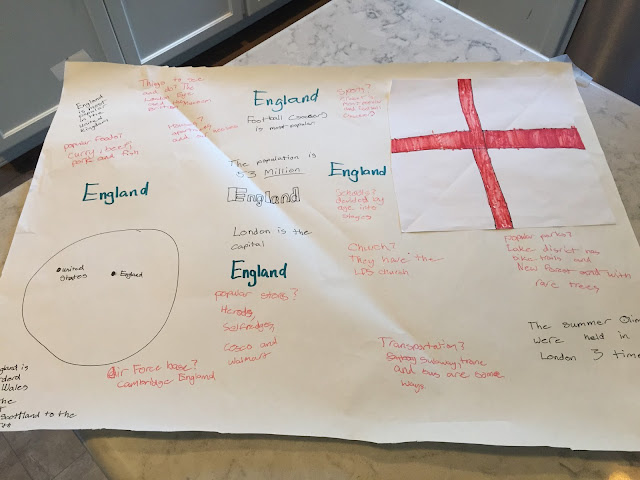 England
is most
in the
United
Kingdom
Things to see
and do? The
London Eye
England
Football (soccer)
is most popular
Sports?
popular foods?
curry, beef,
pork and fish
Homes?
The population is
53 Million
England
Schools?
divided by
age into
stages
England
England
London is the
capital
Church?
They have the
LDS church
popular parks?
Lake district has
lake train and
New Forest and with
rare trees
United
States
England
England
popular stores?
Harods,
Selfridges,
cosco and
walmart
Air Force base?
Cambridge England
Transportation?
subway, trane
and bus are some
ways
The summer Olim
were held in
London 3 time
Wales
Scottland to the